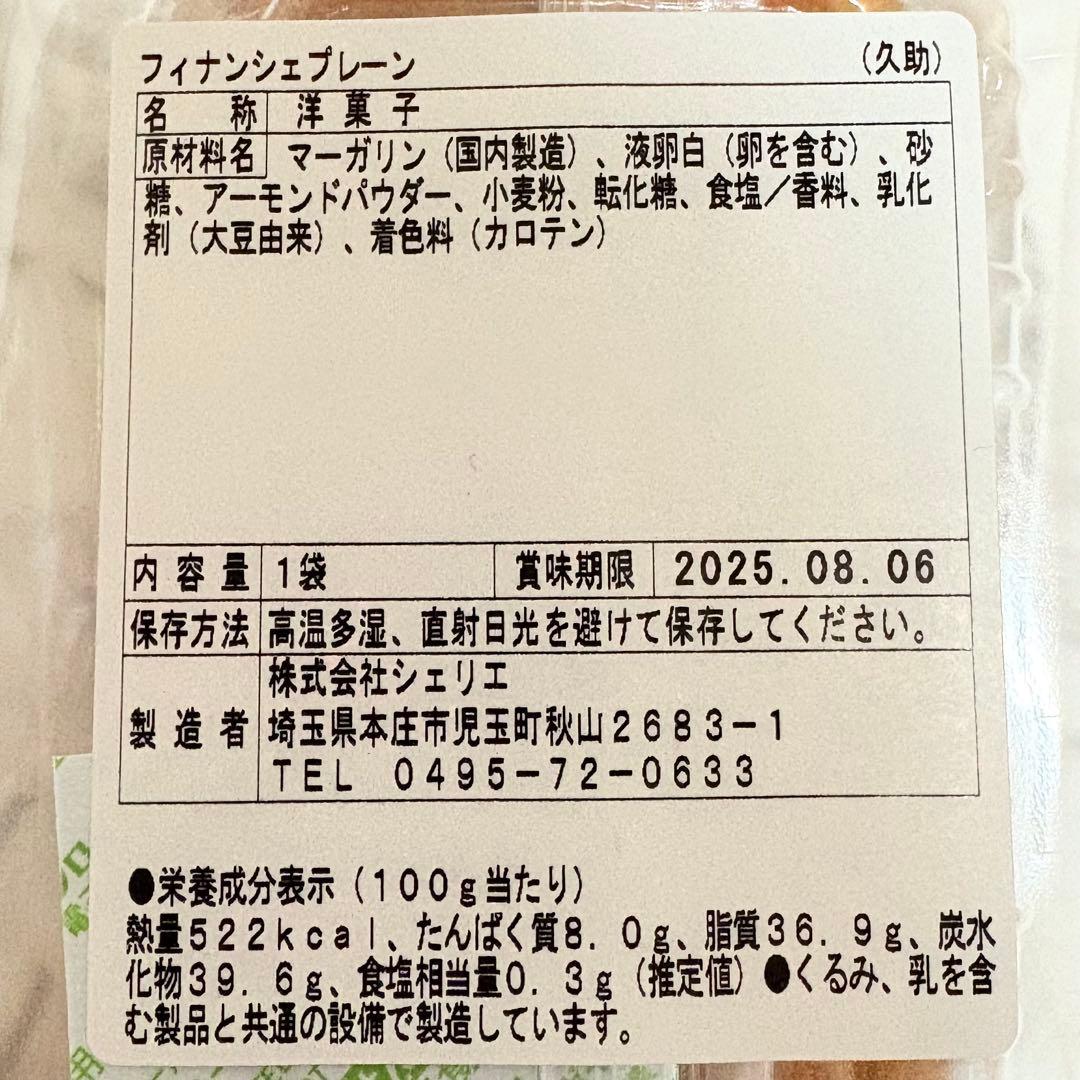 フィナンシェプレーン （久助）
名称 洋菓子
原材料名 マーガリン（国内製造）、液卵白（卵を含む）、砂
糖、アーモンドパウダー、小麦粉、転化糖、食塩／香料、乳化
剤（大豆由来）、着色料（カロテン）
内容量 1袋 賞味期限 2025.08.06
保存方法 高温多湿、直射日光を避けて保存してください。
製造者 株式会社シェリエ
埼玉県本庄市児玉町秋山２６８３－１
ＴＥＬ ０４９５－７２－０６３３
●栄養成分表示（１００ｇ当たり）
熱量５２２ｋｃａｌ、たんぱく質８．０ｇ、脂質３６．９ｇ、炭水
化物３９．６ｇ、食塩相当量０．３ｇ（推定値）●くるみ、乳を含
む製品と共通の設備で製造しています。
用